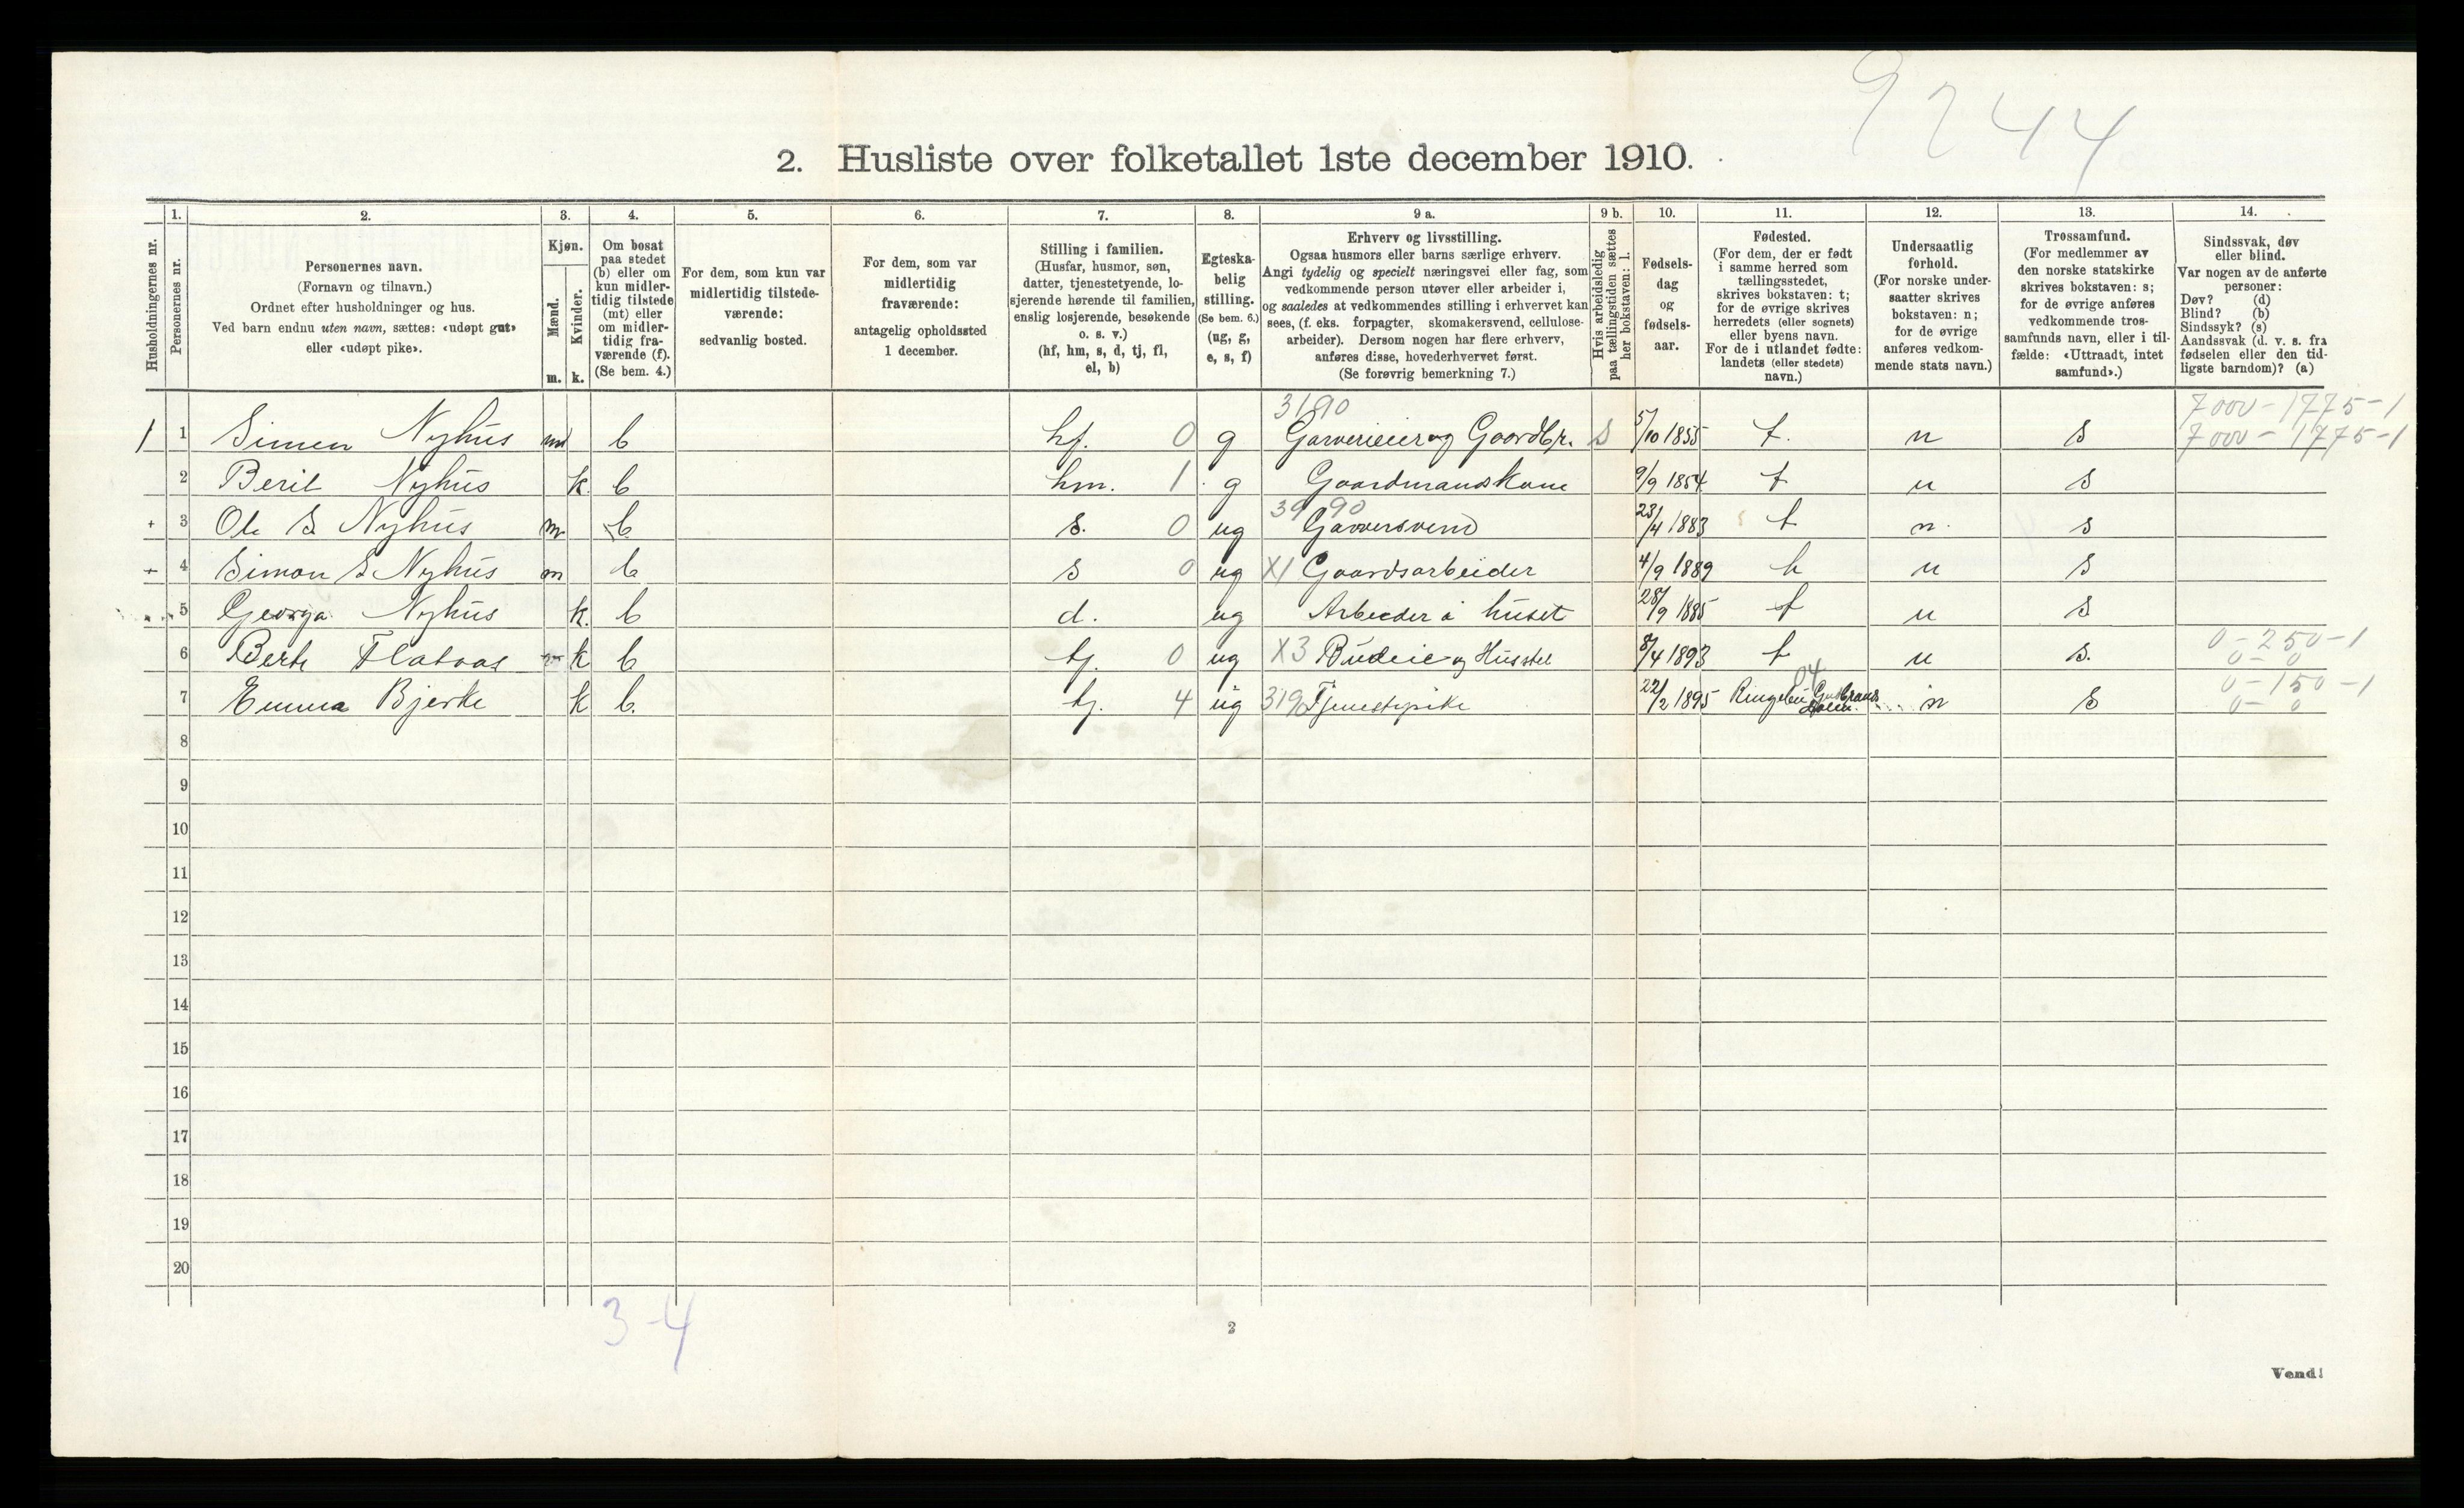 9244
2. Husliste over folketallet 1ste december 1910.
Husholdningernes nr.
1.
Personernes nr.
2.
Personernes navn.
(Fornavn og tilnavn.)
Ordnet efter husholdninger og hus.
Ved barn endnu uten navn, sættes: «udøpt gut»
eller «udøpt pike».
3.
Kjøn.
Mænd.
Kvinder.
m. k.
4.
Om bosat
paa stedet
(b) eller om
kun midler-
tidig tilstede
(mt) eller
om midler-
tidig fra-
værende (f).
(Se bem. 4.)
5.
For dem, som kun var
midlertidig tilstede-
værende:
sedvanlig bosted.
6.
For dem, som var
midlertidig
fraværende:
antagelig opholdssted
1 december.
7.
Stilling i familien.
(Husfar, husmor, søn,
datter, tjenestetyende, lo-
sjerende hørende til familien,
enslig losjerende, besøkende
o. s. v.)
(hf, hm, s, d, tj, fl,
el, b)
8.
Egteska-
belig
stilling.
(Se bem. 6.)
(ug, g,
e, s, f)
9 a.
Erhverv og livsstilling.
Ogsaa husmors eller barns særlige erhverv.
Angi tydelig og specielt næringsvei eller fag, som
vedkommende person utøver eller arbeider i,
og saaledes at vedkommendes stilling i erhvervet kan
sees, (f. eks. forpagter, skomakersvend, cellulose-
arbeider). Dersom nogen har flere erhverv,
anføres disse, hovederhvervet først.
(Se forøvrig bemerkning 7.)
9 b.
Hvis arbeidsledig
paa tællingstiden sættes
her bokstaven: l.
10.
Fødsels-
dag
og
fødsels-
aar.
11.
Fødested.
(For dem, der er født
i samme herred som
tællingsstedet,
skrives bokstaven: t;
for de øvrige skrives
herredets (eller sognets)
eller byens navn.
For de i utlandet fødte:
landets (eller stedets)
navn.)
12.
Undersaatlig
forhold.
(For norske under-
saatter skrives
bokstaven: n;
for de øvrige
anføres vedkom-
mende stats navn.)
13.
Trossamfund.
(For medlemmer av
den norske statskirke
skrives bokstaven: s;
for de øvrige anføres
vedkommende tros-
samfunds navn, eller i til-
fælde: «Uttraadt, intet
samfund».)
14.
Sindssvak, døv
eller blind.
Var nogen av de anførte
personer:
Døv? (d)
Blind? (b)
Sindssyk? (s)
Aandssvak (d. v. s. fra
fødselen eller den tid-
ligste barndom)? (a)
3190 7000-1775-1
1 1 Simen Nyhus m b hf. 0 g Garverieier og Gaardbr. S 5/10 1855 t. n s 7000-1775-1
2 Berit Nyhus k. b hm. 1 g Gaardmandskone 9/9 1854 t n s
3990
+ 3 Ole S Nyhus m b s. 0 ug Garversvend 23/4 1883 t n. s
+ 4 Simon S Nyhus m b s 0 ug X1 Gaardsarbeider 4/9 1889 t n s
5 Georga Nyhus k. b d. ug Arbeider i huset 28/9 1885 t n s
6 Berte Flataas k b tj. 0 ug X3 Budeie og Husstel 8/4 1893 t n s. 0-250-1
0-0
04
7 Emma Bjerke k b. tj. 4 ug 319 Tjenestepike 22/2 1895 Ringebu Gudbrans Dalen. n s 0-150-1
0-0
8
9
10
11
12
13
14
15
16
17
18
19
20
3-4
2
Vend!